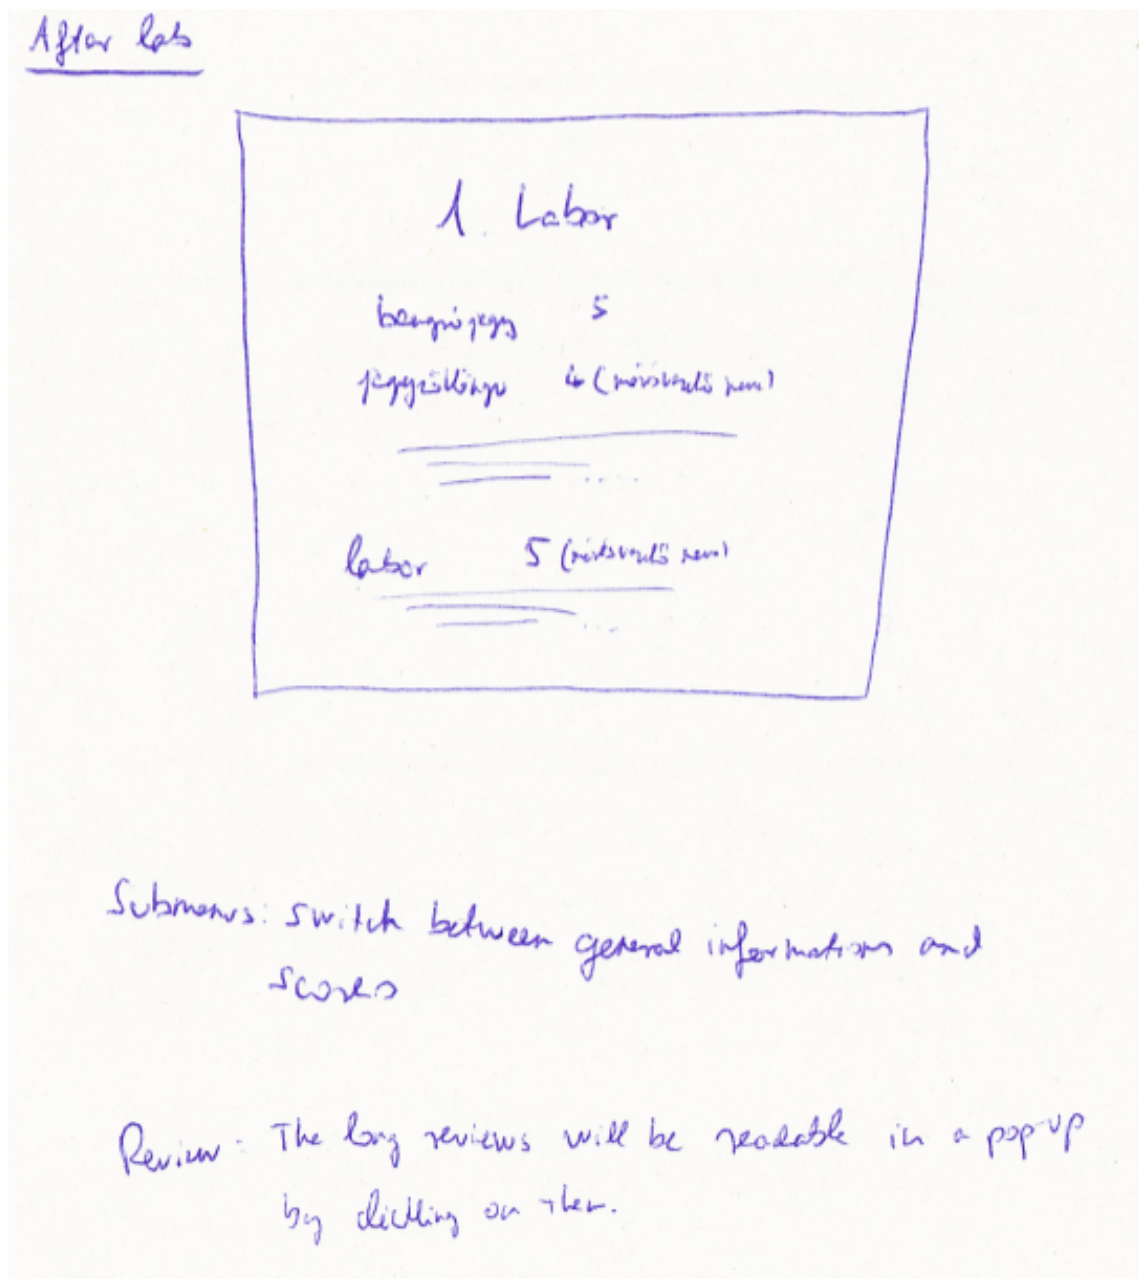 After lab
1. Labor
beugró jegy 5
jegyzőkönyv 4 (mérésvezető neve)
labor 5 (mérésvezető neve)
Submenus: switch between general informations and
scores
Review: The long reviews will be readable in a pop-up
by clicking on them.